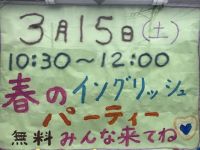 3月15日(土)
10:30~12:00
春のイングリッシュ
パーティー
無料みんな来てね